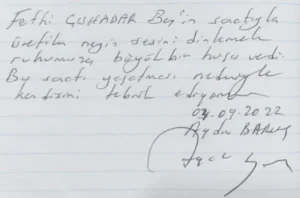 Fethi ÇUHADAR Bey'in sanatıyla
üretilen neyin sesini dinlemek
ruhumuza büyük bir huşu verdi.
Bu sanatı yaşatması nedeniyle
kendisini tebrik ediyorum
04.09.2022
Ayda